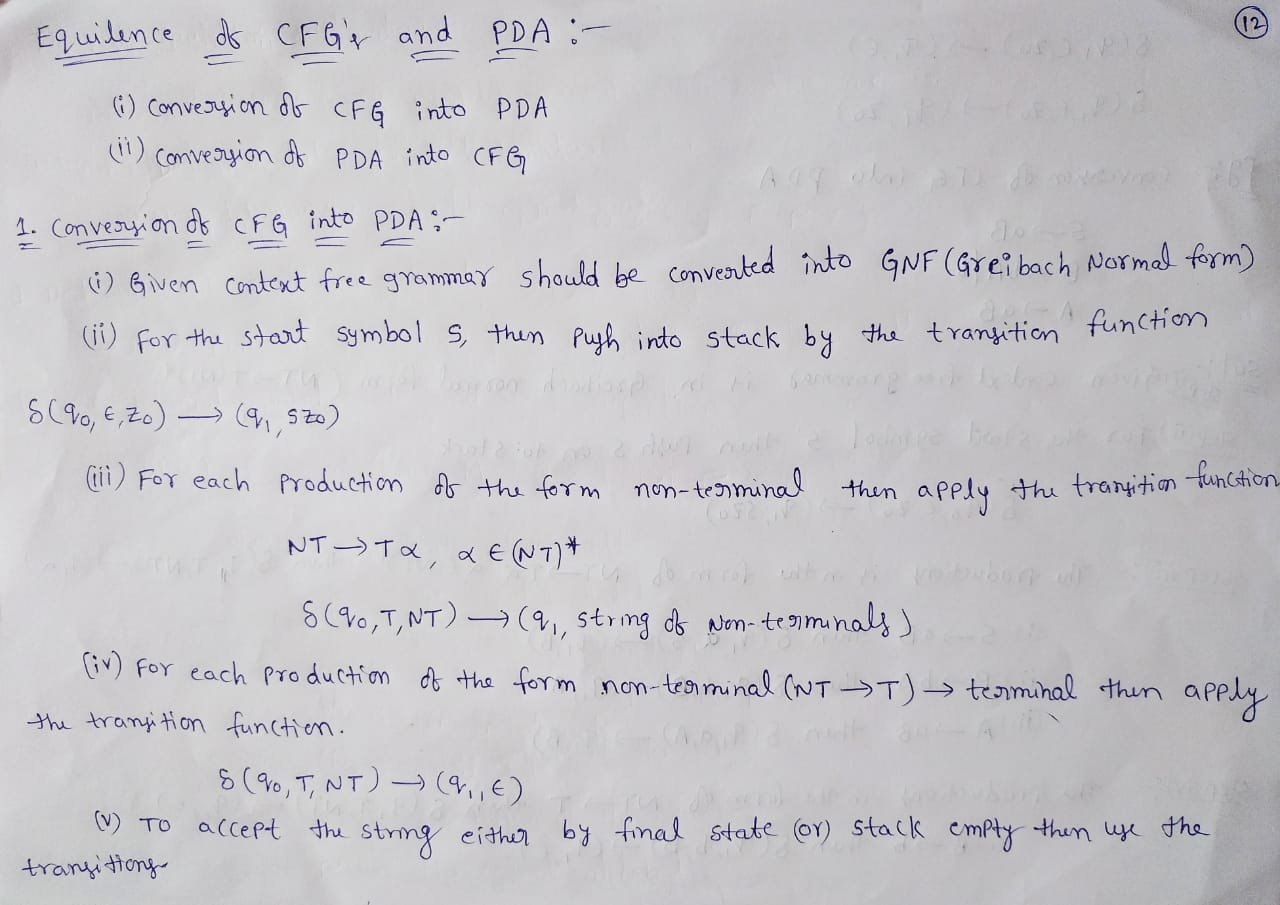 Equilence of CFG's and PDA :-
12
(i) Conversion of CFG into PDA
(ii) Conversion of PDA into CFG
1. Conversion of CFG into PDA :-
(i) Given Context free grammar should be converted into GNF (Greibach Normal form)
(ii) For the start symbol S, then Push into stack by the transition function
δ(q₀, ε, z₀) → (q₁, Sz₀)
(iii) For each Production of the form non-terminal then apply the transition function
NT → Tα, α ∈ (NT)*
δ(q₀, T, NT) → (q₁, string of Non-terminals)
(iv) For each Production of the form non-terminal (NT → T) → terminal then apply
the transition function.
δ(q₀, T, NT) → (q₁, ε)
(v) To accept the string either by final state (or) stack empty then use the
transitions